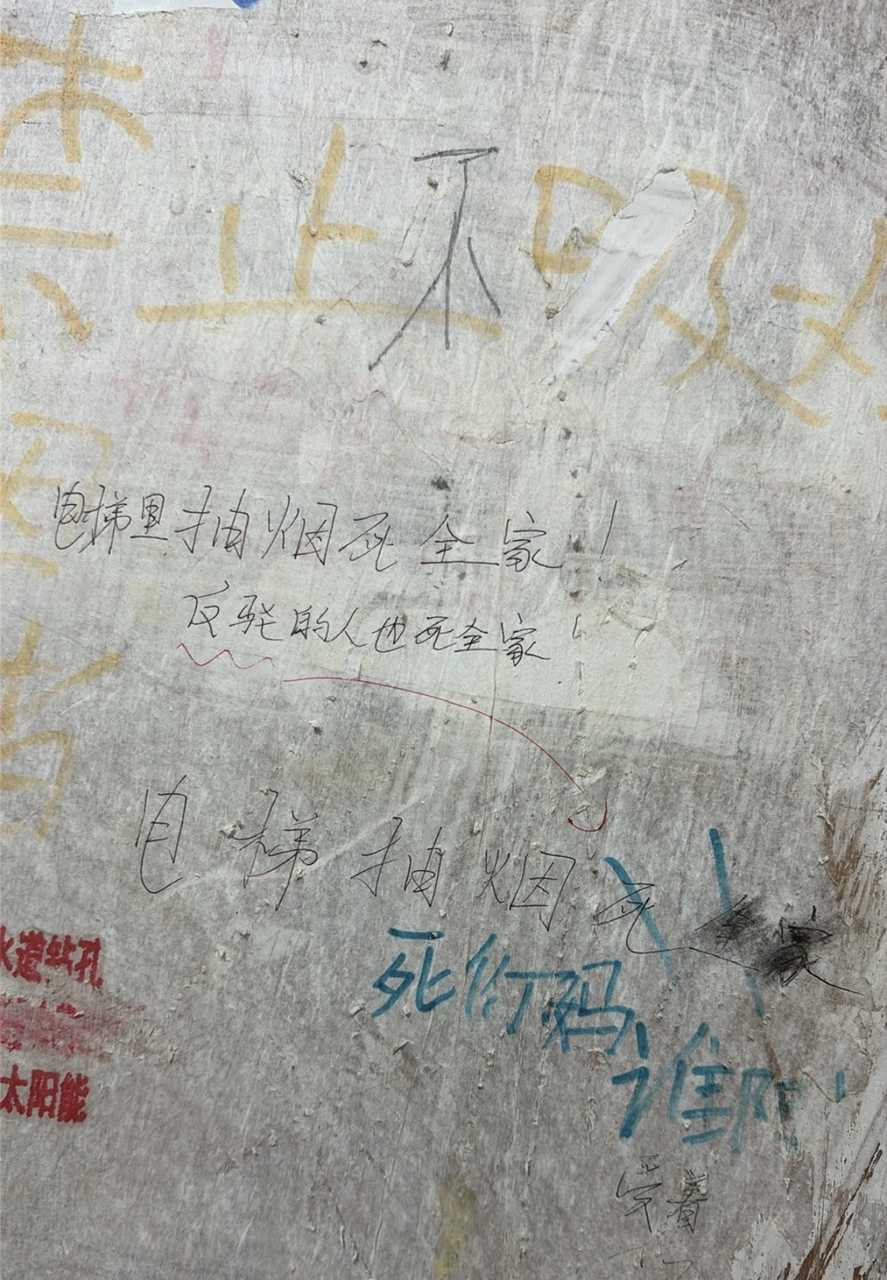 禁止不吸
电梯里抽烟死全家!
反驳的人也死全家!
电梯抽烟死全家
死你码
谁
水道钻孔
太阳能
受着